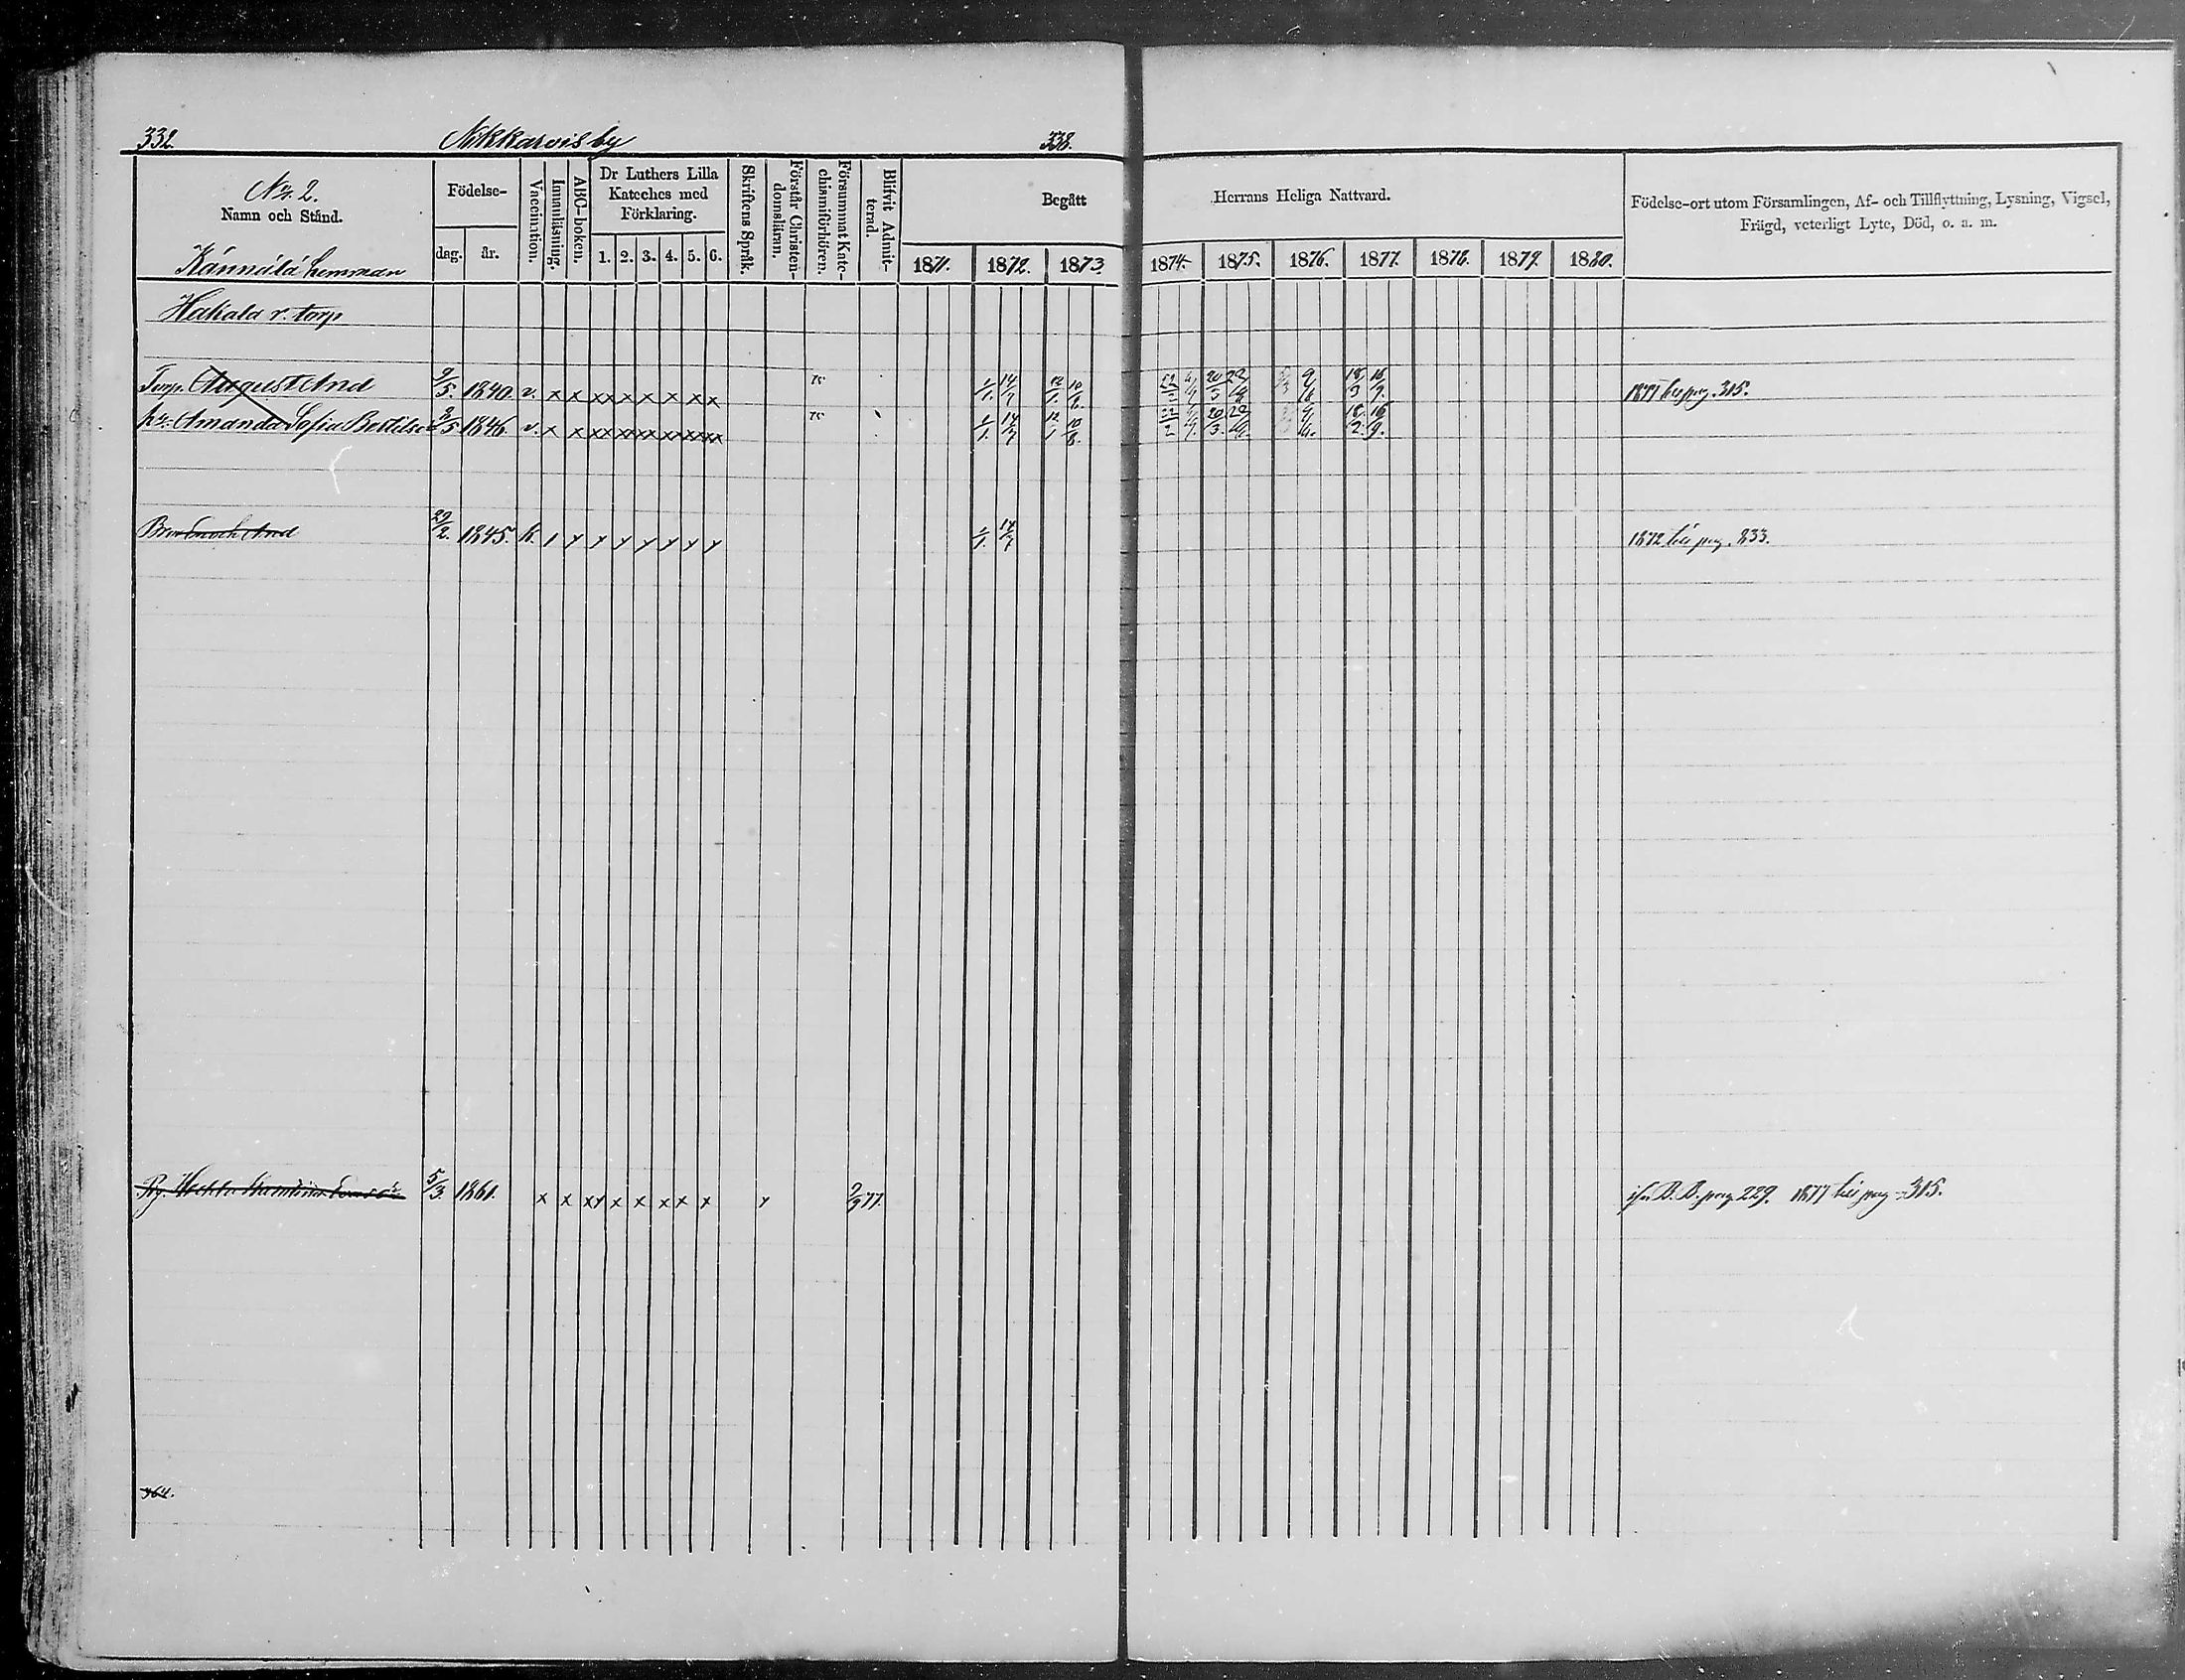 332. Nokkarvis by 338.
No. 2.
Namn och Stånd.
Kännälä hemman
Födelse-
dag. år.
Vaccination.
Innanläsning.
ABC-boken.
Dr Luthers Lilla
Kateches med
Förklaring.
1. 2. 3. 4. 5. 6.
Skriftens Språk.
Förstår Christen-
domsläran.
Försummat Kate-
chismiförhören.
Blifvit Admit-
terad.
Begått Herrans Heliga Nattvard.
1871. 1872. 1873. 1874. 1875. 1876. 1877. 1878. 1879. 1880.
Födelse-ort utom Församlingen, Af- och Tillflyttning, Lysning, Vigsel,
Frägd, veterligt Lyte, Död, o. a. m.
Hakala r. torp
Torp. August And 9/5. 1840. v. x x xx x x x x x 75 1/1. 14/7 12/1. 10/8. 20/3 18/3 16/9. 1877 till pag. 315.
h:u Amanda Sofia Bertils 3/5 1846. v. x x 75 1/1. 14/7 12/1 10/8. 22/2 20/3. 18/2. 16/9.
Bror Enoch And 29/2. 1845. 1/1. 14/7 1872 till pag. 333.
Pig. 5/3. 1861. x x x x x x 2/9 77. ifr. B.B. pag. 229. 1877 till pag 315.
364.